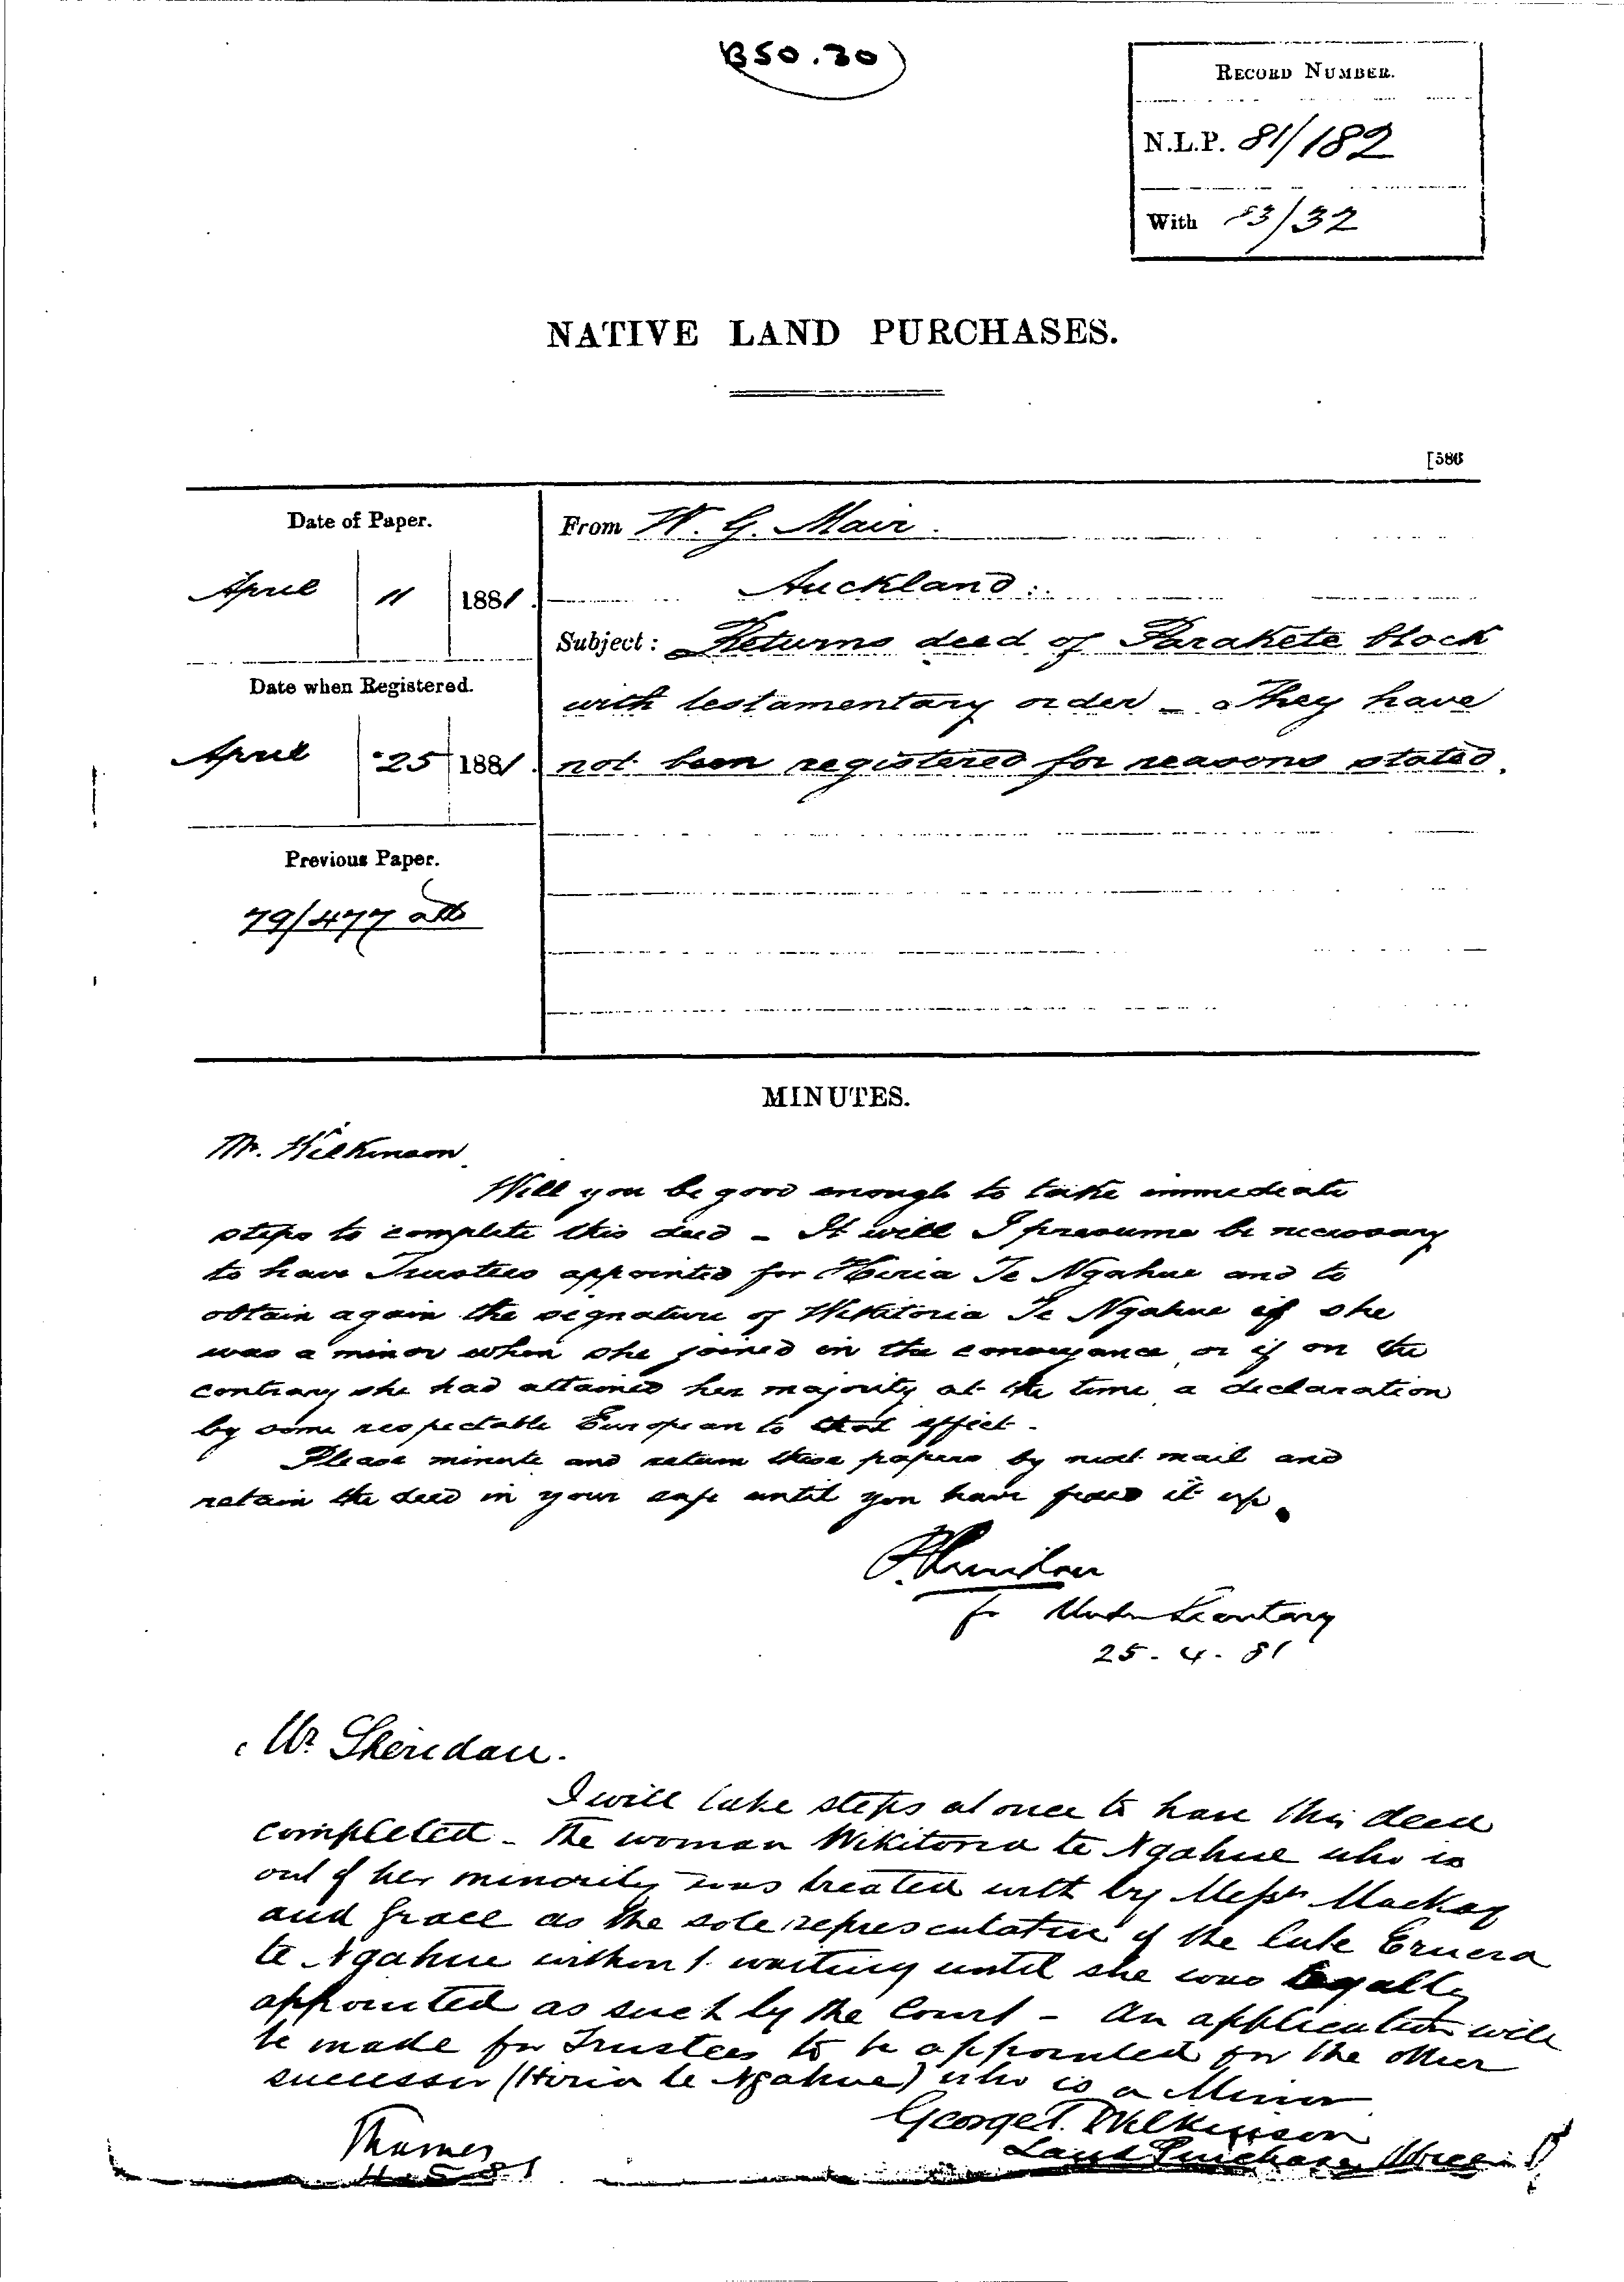 B50.30
RECORD NUMBER.
N.L.P. 81/182
With 83/32
NATIVE LAND PURCHASES.
[586
Date of Paper.
April 11 1881.
Date when Registered.
April 25 1881.
Previous Paper.
79/477 atts
From W. G. Mair.
Auckland:
Subject: Returns deed of Parakete block
with testamentary order – They have
not been registered for reasons stated.
MINUTES.
Mr. Wilkinson
Will you be good enough to take immediate
steps to complete this deed – It will I presume be necessary
to have Trustees appointed for Hiria Te Ngahue and to
obtain again the signature of Wikitoria Te Ngahue if she
was a minor when she joined in the conveyance or if on the
contrary she had attained her majority at the time a declaration
by some respectable European to that effect.
Please minute and return these papers by next mail and
retain the deed in your safe until you have fixed it up.
P Sheridan
for Under Secretary
25 - 4 - 81
Mr Sheridan.
I will take steps at once to have this deed
completed – The woman Wikitoria te Ngahue who is
out of her minority was treated with by Messrs Mackay
and Grace as the sole representative of the late Eruera
te Ngahue without waiting until she was legally
appointed as such by the Court – An application will
be made for Trustees to be appointed for the other
successor (Hiria te Ngahue) who is a Minor
George T. Wilkinson
Land Purchase Officer
Thames
4 5 81